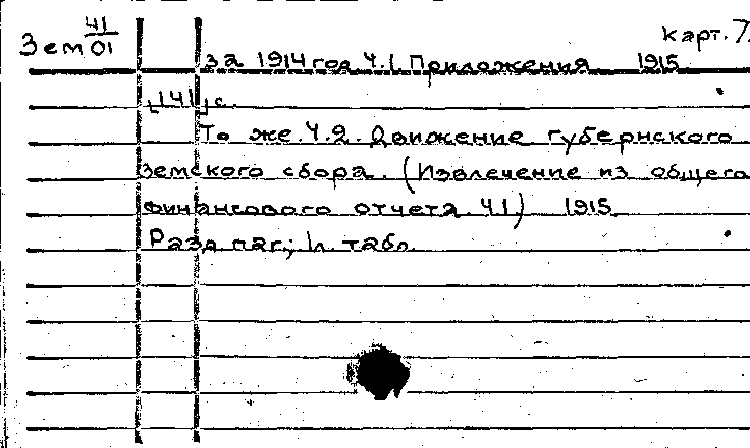 Зем 41/01 карт. 7
за 1914 год Ч.1. Приложения 1915
[141] с.
То же. Ч.2. Движение губернского
земского сбора. (Извлечение из общего
финансового отчета. Ч1) 1915.
Разд. паг.; л. табл.